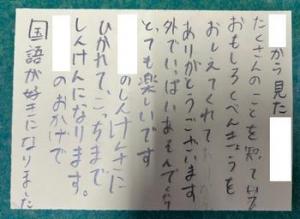 から見た
たくさんのことを知っていて
おもしろくべんきょうを
おしえてくれて
ありがとうございます
外でいっぱいあそんで
とても楽しいです
のしんけんさに
ひかれて、こっちまで
しんけんになります。
のおかげで
国語が好きになりました